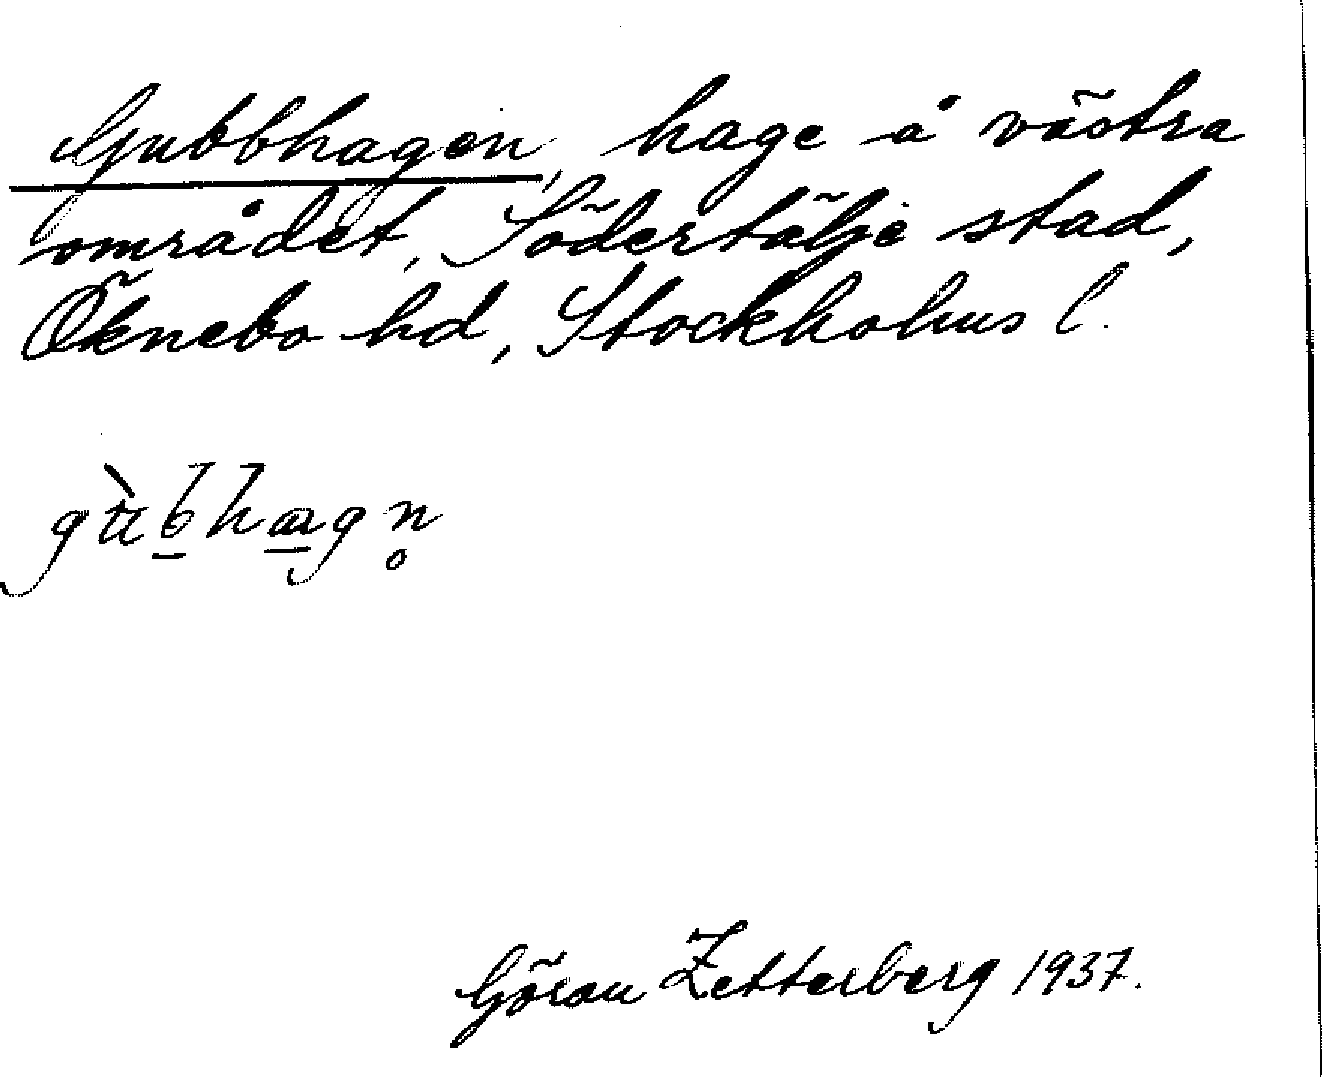 Gubbhagen, hage å västra
området, Södertälje stad,
Öknebo hd, Stockholms l.
Göran Zetterberg 1937.